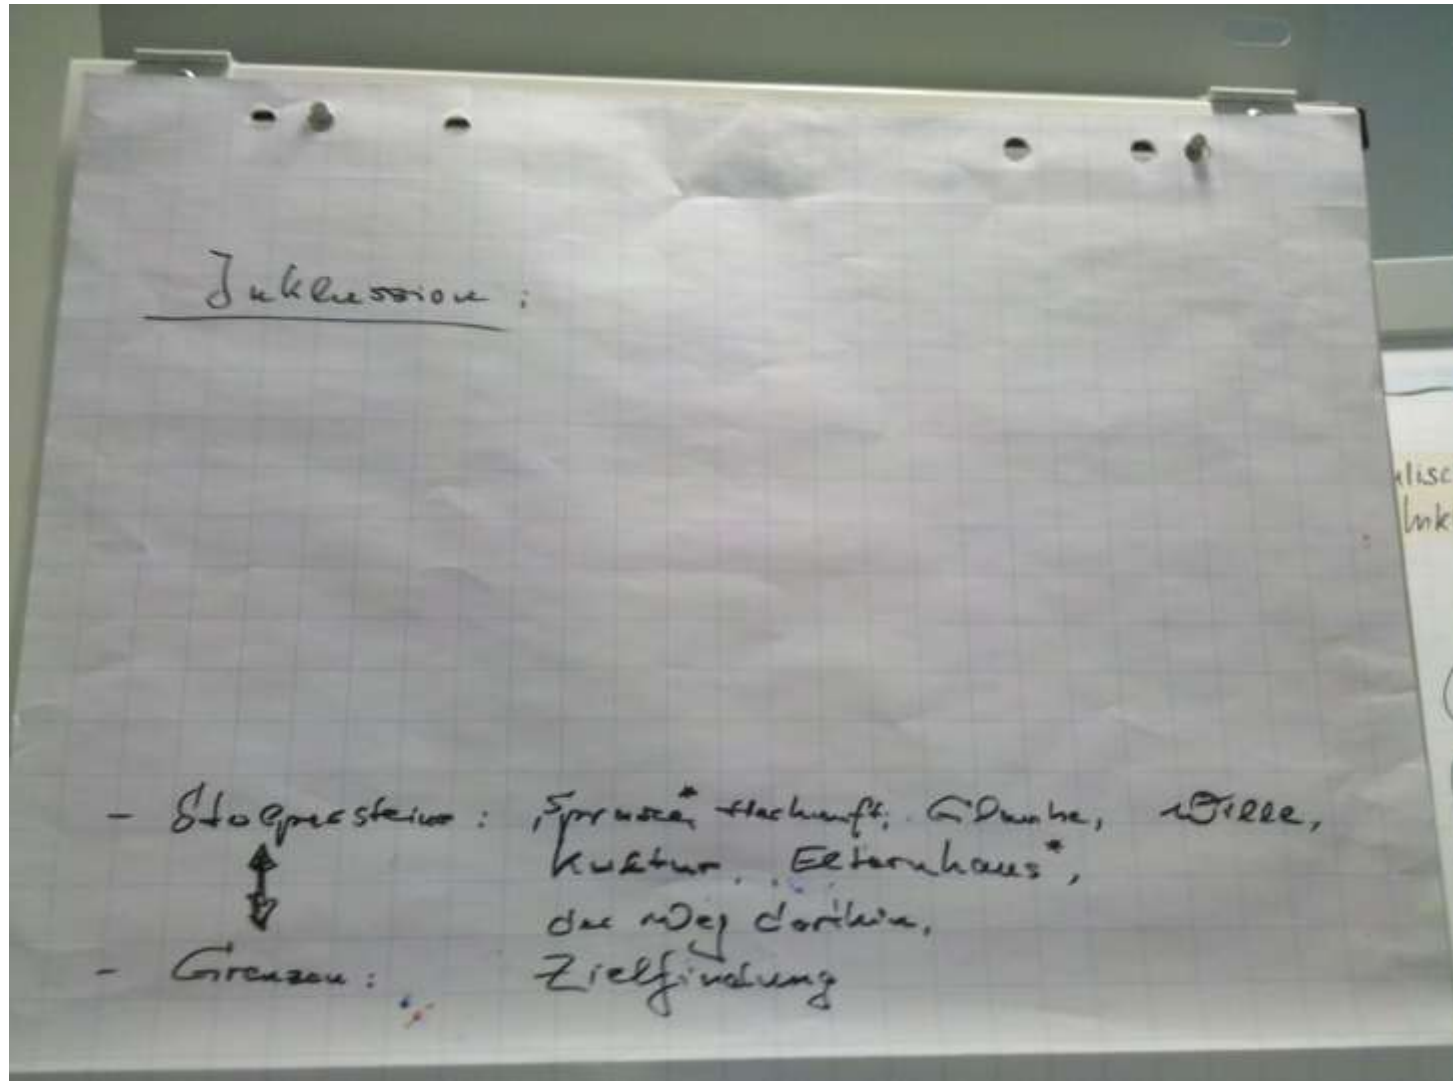 Inklussion :
- Stolpersteine : Sprache*, Herkunft, Glaube, Wille,
Kultur, Elternhaus*,
der Weg dorthin,
- Grenzen : Zielfindung
lisc
Ink